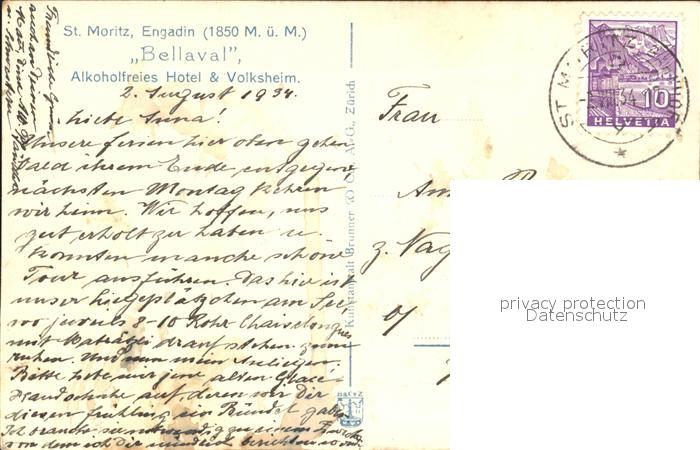 St. Moritz, Engadin (1850 M. ü. M.)
„Bellaval",
Alkoholfreies Hotel & Volksheim.
2. August 1934.
Liebe Anna!
Unsere ferien hier oben gehen
bald ihrem Ende entgegen,
nächsten Montag kehren
wir heim. Wir hoffen, uns
gut erholt zu haben u.
konnten manche schöne
Tour ausführen. Das hier ist
unser Liegeplätzchen am See,
wo jeweils 8-10 Rohr Chaiselongues
mit Matratzli drauf stehen zum
ruhen. Und nun mein Anliegen.
Bitte hebe mir jene alten Glacé
Handschuhe auf deren wir Dir
diesen frühling ein Bündel gaben
Ich brauche sie notwendig zu einem Zweck
von dem ich Dir mündlich berichten
Kunstanstalt Brunner & Co. A.-G., Zürich
BRCZ
Frau
z.
ST. MORITZ
-2.VIII.34
10
HELVETIA
privacy protection
Datenschutz